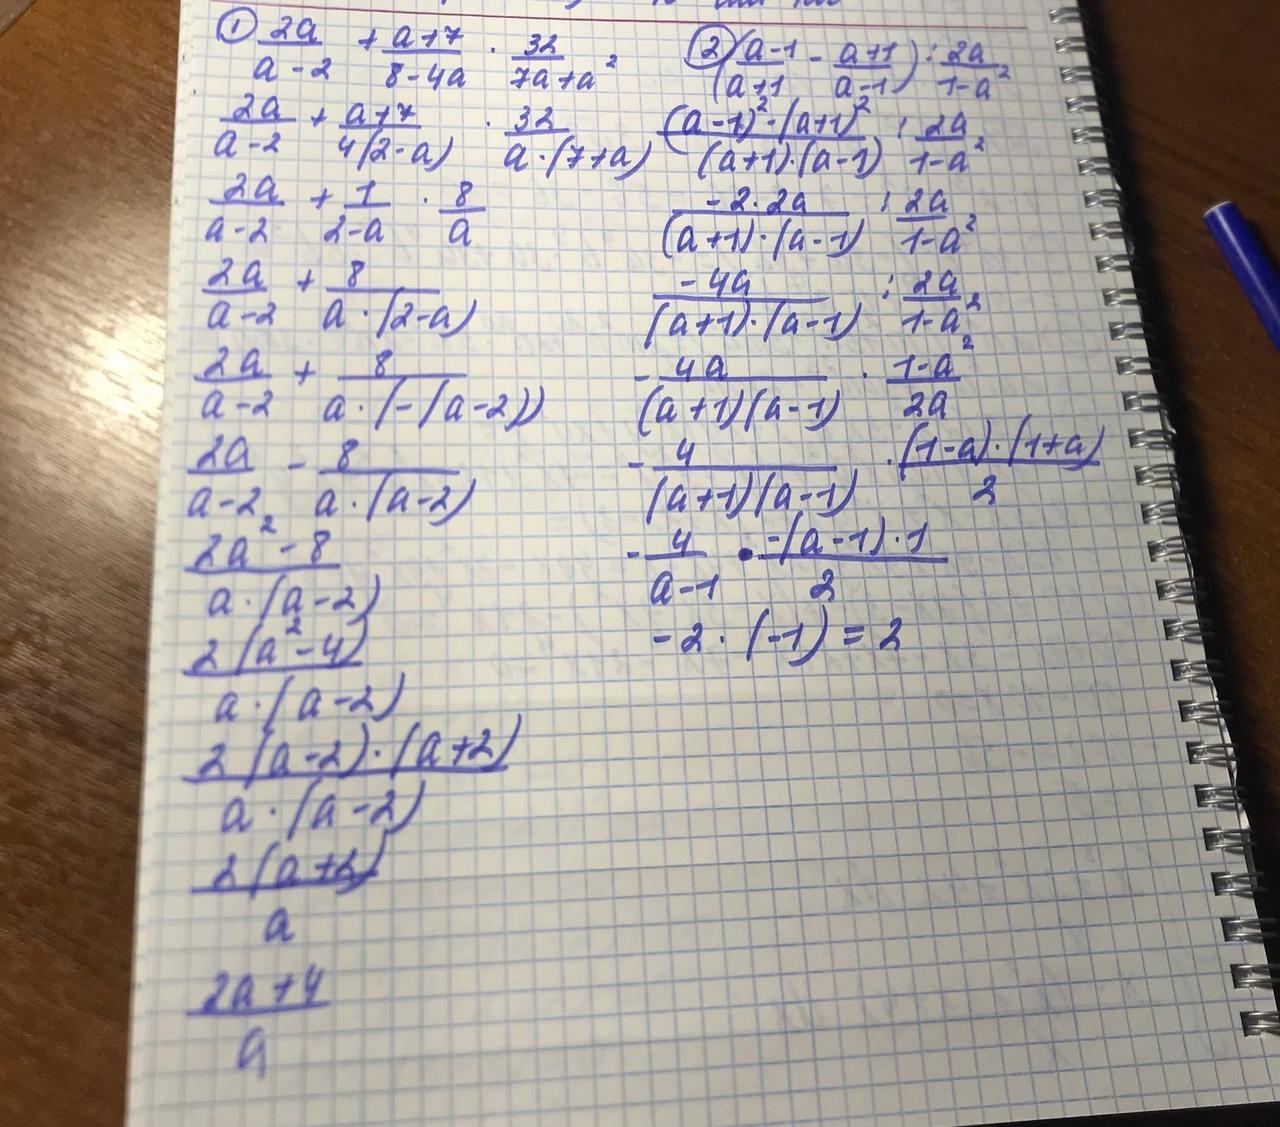 ① 2a/(a-2) + (a+7)/(8-4a) · 32/(7a+a²)
2a/(a-2) + (a+7)/(4(2-a)) · 32/(a·(7+a))
2a/(a-2) + 1/(2-a) · 8/a
2a/(a-2) + 8/(a·(2-a))
2a/(a-2) + 8/(a·(-(a-2)))
2a/(a-2) - 8/(a·(a-2))
(2a²-8)/(a·(a-2))
2(a²-4)/(a·(a-2))
2(a-2)·(a+2)/(a·(a-2))
2(a+2)/a
(2a+4)/a
② ((a-1)/(a+1) - (a+1)/(a-1)) : 2a/(1-a²)
((a-1)²-(a+1)²)/((a+1)·(a-1)) : 2a/(1-a²)
(-2·2a)/((a+1)·(a-1)) : 2a/(1-a²)
(-4a)/((a+1)·(a-1)) : 2a/(1-a²)
- 4a/((a+1)(a-1)) · (1-a²)/(2a)
- 4/((a+1)(a-1)) · ((1-a)·(1+a))/2
- 4/(a-1) · (-(a-1)·1)/2
-2·(-1)=2